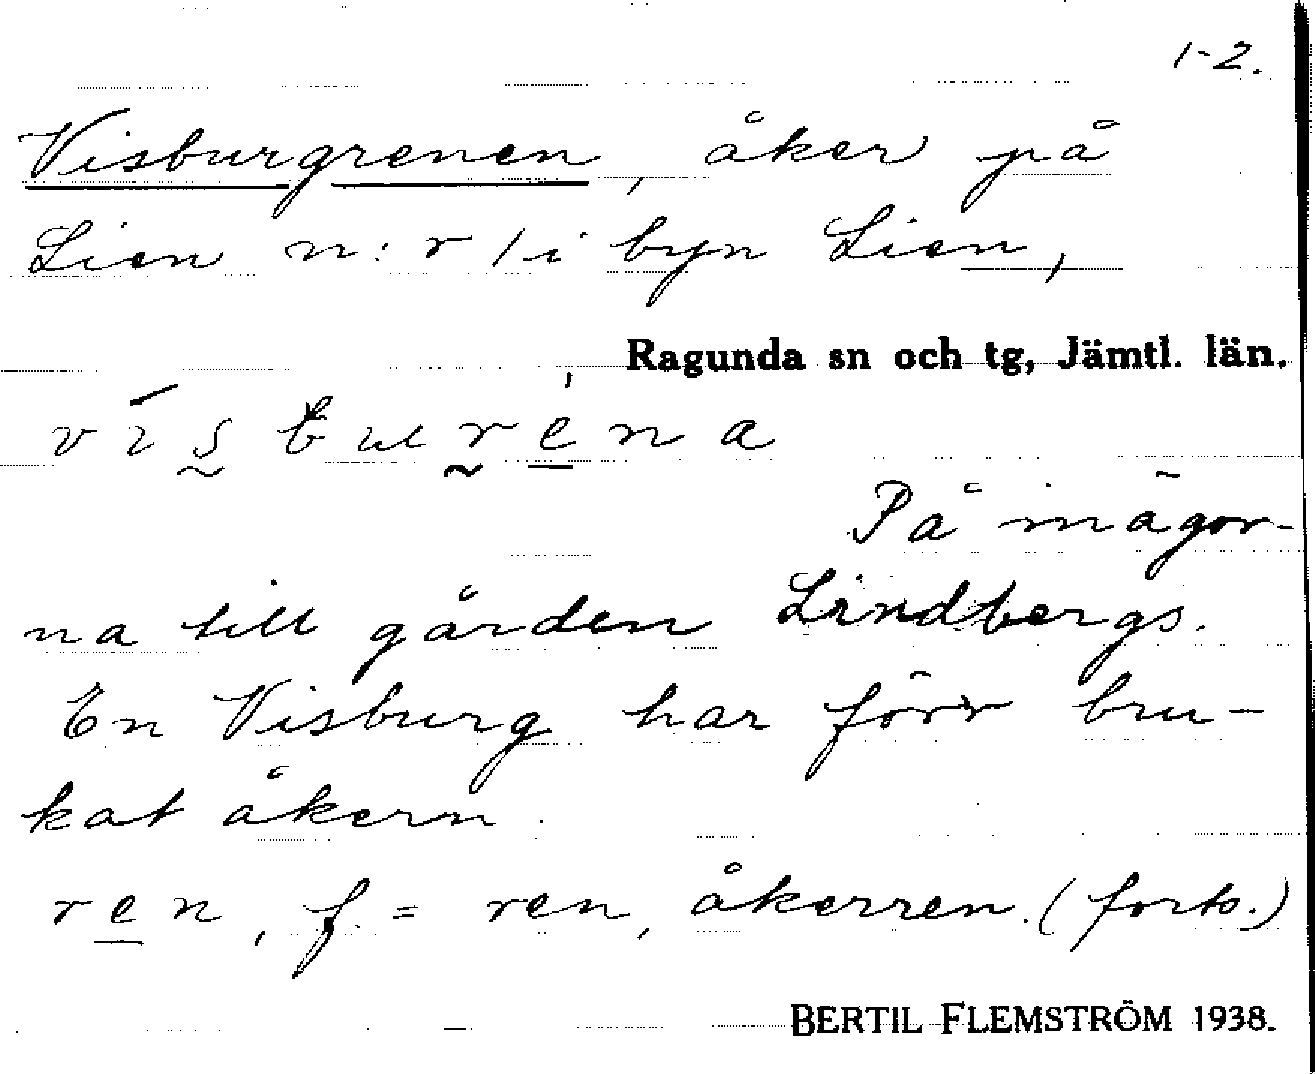 1-2.
Visburgrenen, åker på
Lien n:r 1 i byn Lien,
Ragunda sn och tg, Jämtl. län.
På mägor-
na till gården Lindbergs.
En Visburg har förr bru-
kat åkern.
ren, f. = ren, åkerren. (forts.)
BERTIL FLEMSTRÖM 1938.